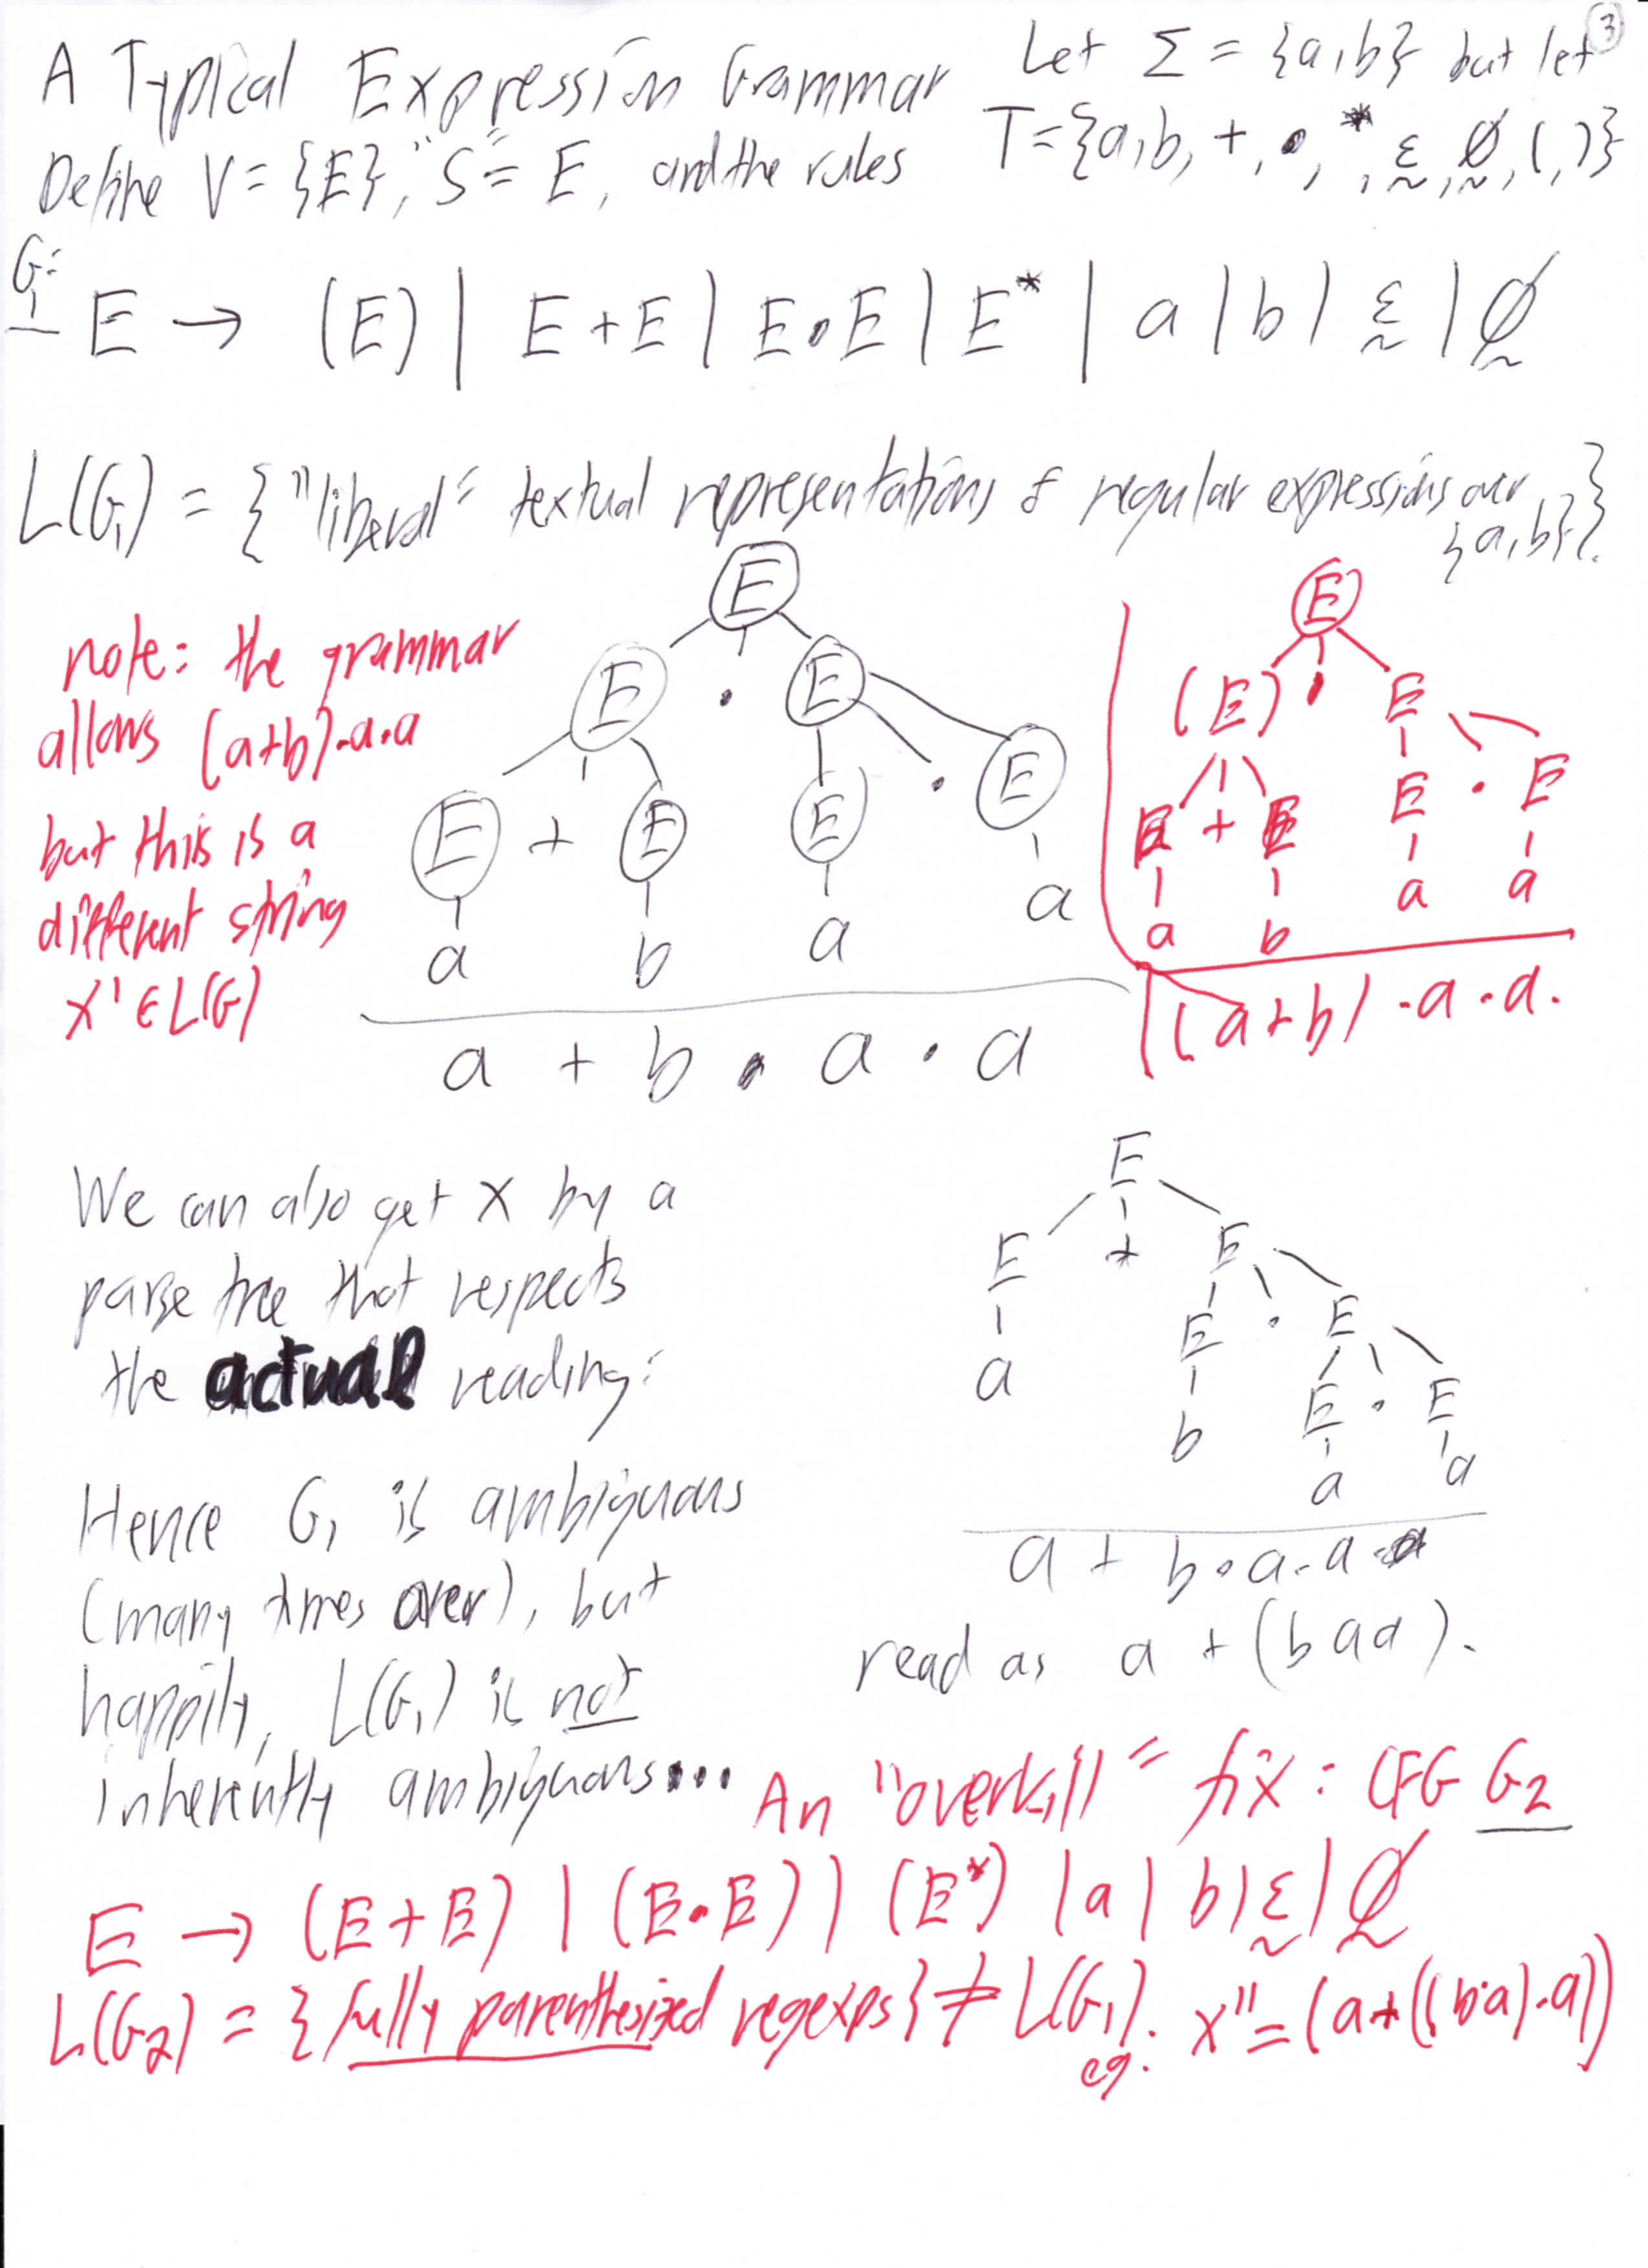 ③
A Typical Expression Grammar Let Σ = {a,b} but let
Define V = {E}, "S" = E, and the rules T = {a, b, +, •, *, ε, ∅, (, )}
G₁:
E → (E) | E + E | E • E | E* | a | b | ε | ∅
L(G₁) = { "liberal" textual representations of regular expressions over
{a,b}}.
note: the grammar
allows (a+b)·a·a
but this is a
different string
x' ∈ L(G)
E
E · E
E + E E · E
a b a a
a + b • a • a
E
(E) • E
E + E E • E
a b a a
(a+b) · a · a.
We can also get x by a
parse tree that respects
the actual reading:
E
E + E
a E · E
b E · E
a a
a + b • a · a
read as a + (b a a).
Hence G₁ is ambiguous
(many times over), but
happily, L(G₁) is not
inherently ambiguous...
An "overkill" fix: CFG G₂
E → (E + E) | (E • E) | (E*) | a | b | ε | ∅
L(G₂) = { fully parenthesized regexps } ≠ L(G₁). eg. x'' = (a+((b·a)·a))